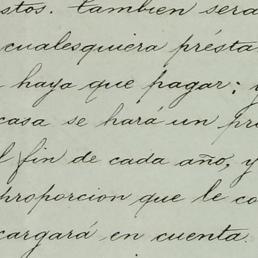 stos. Tambien será
cualesquiera présta
haya que pagar; y
casa se hará un pr
l fin de cada año, y
proporcion que le co
cargará en cuenta.